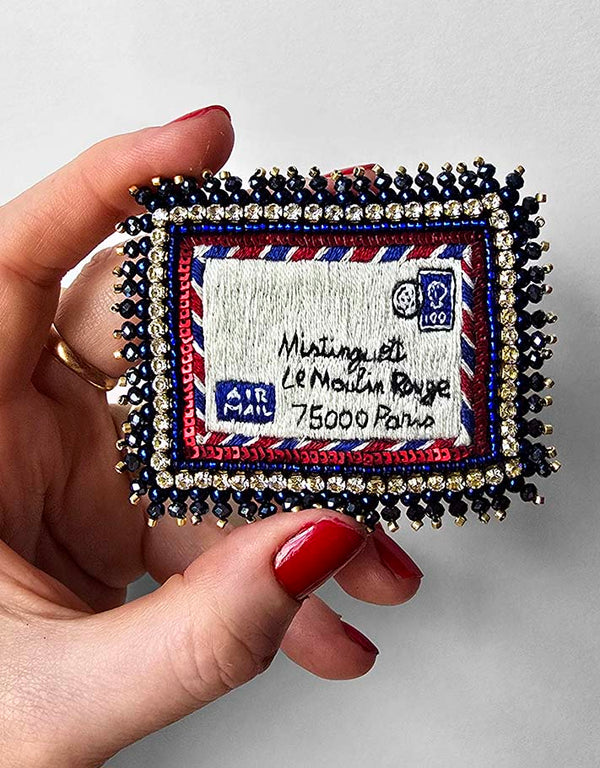 100
Mistinguett
Le Moulin Rouge
75000 Paris
AIR
MAIL